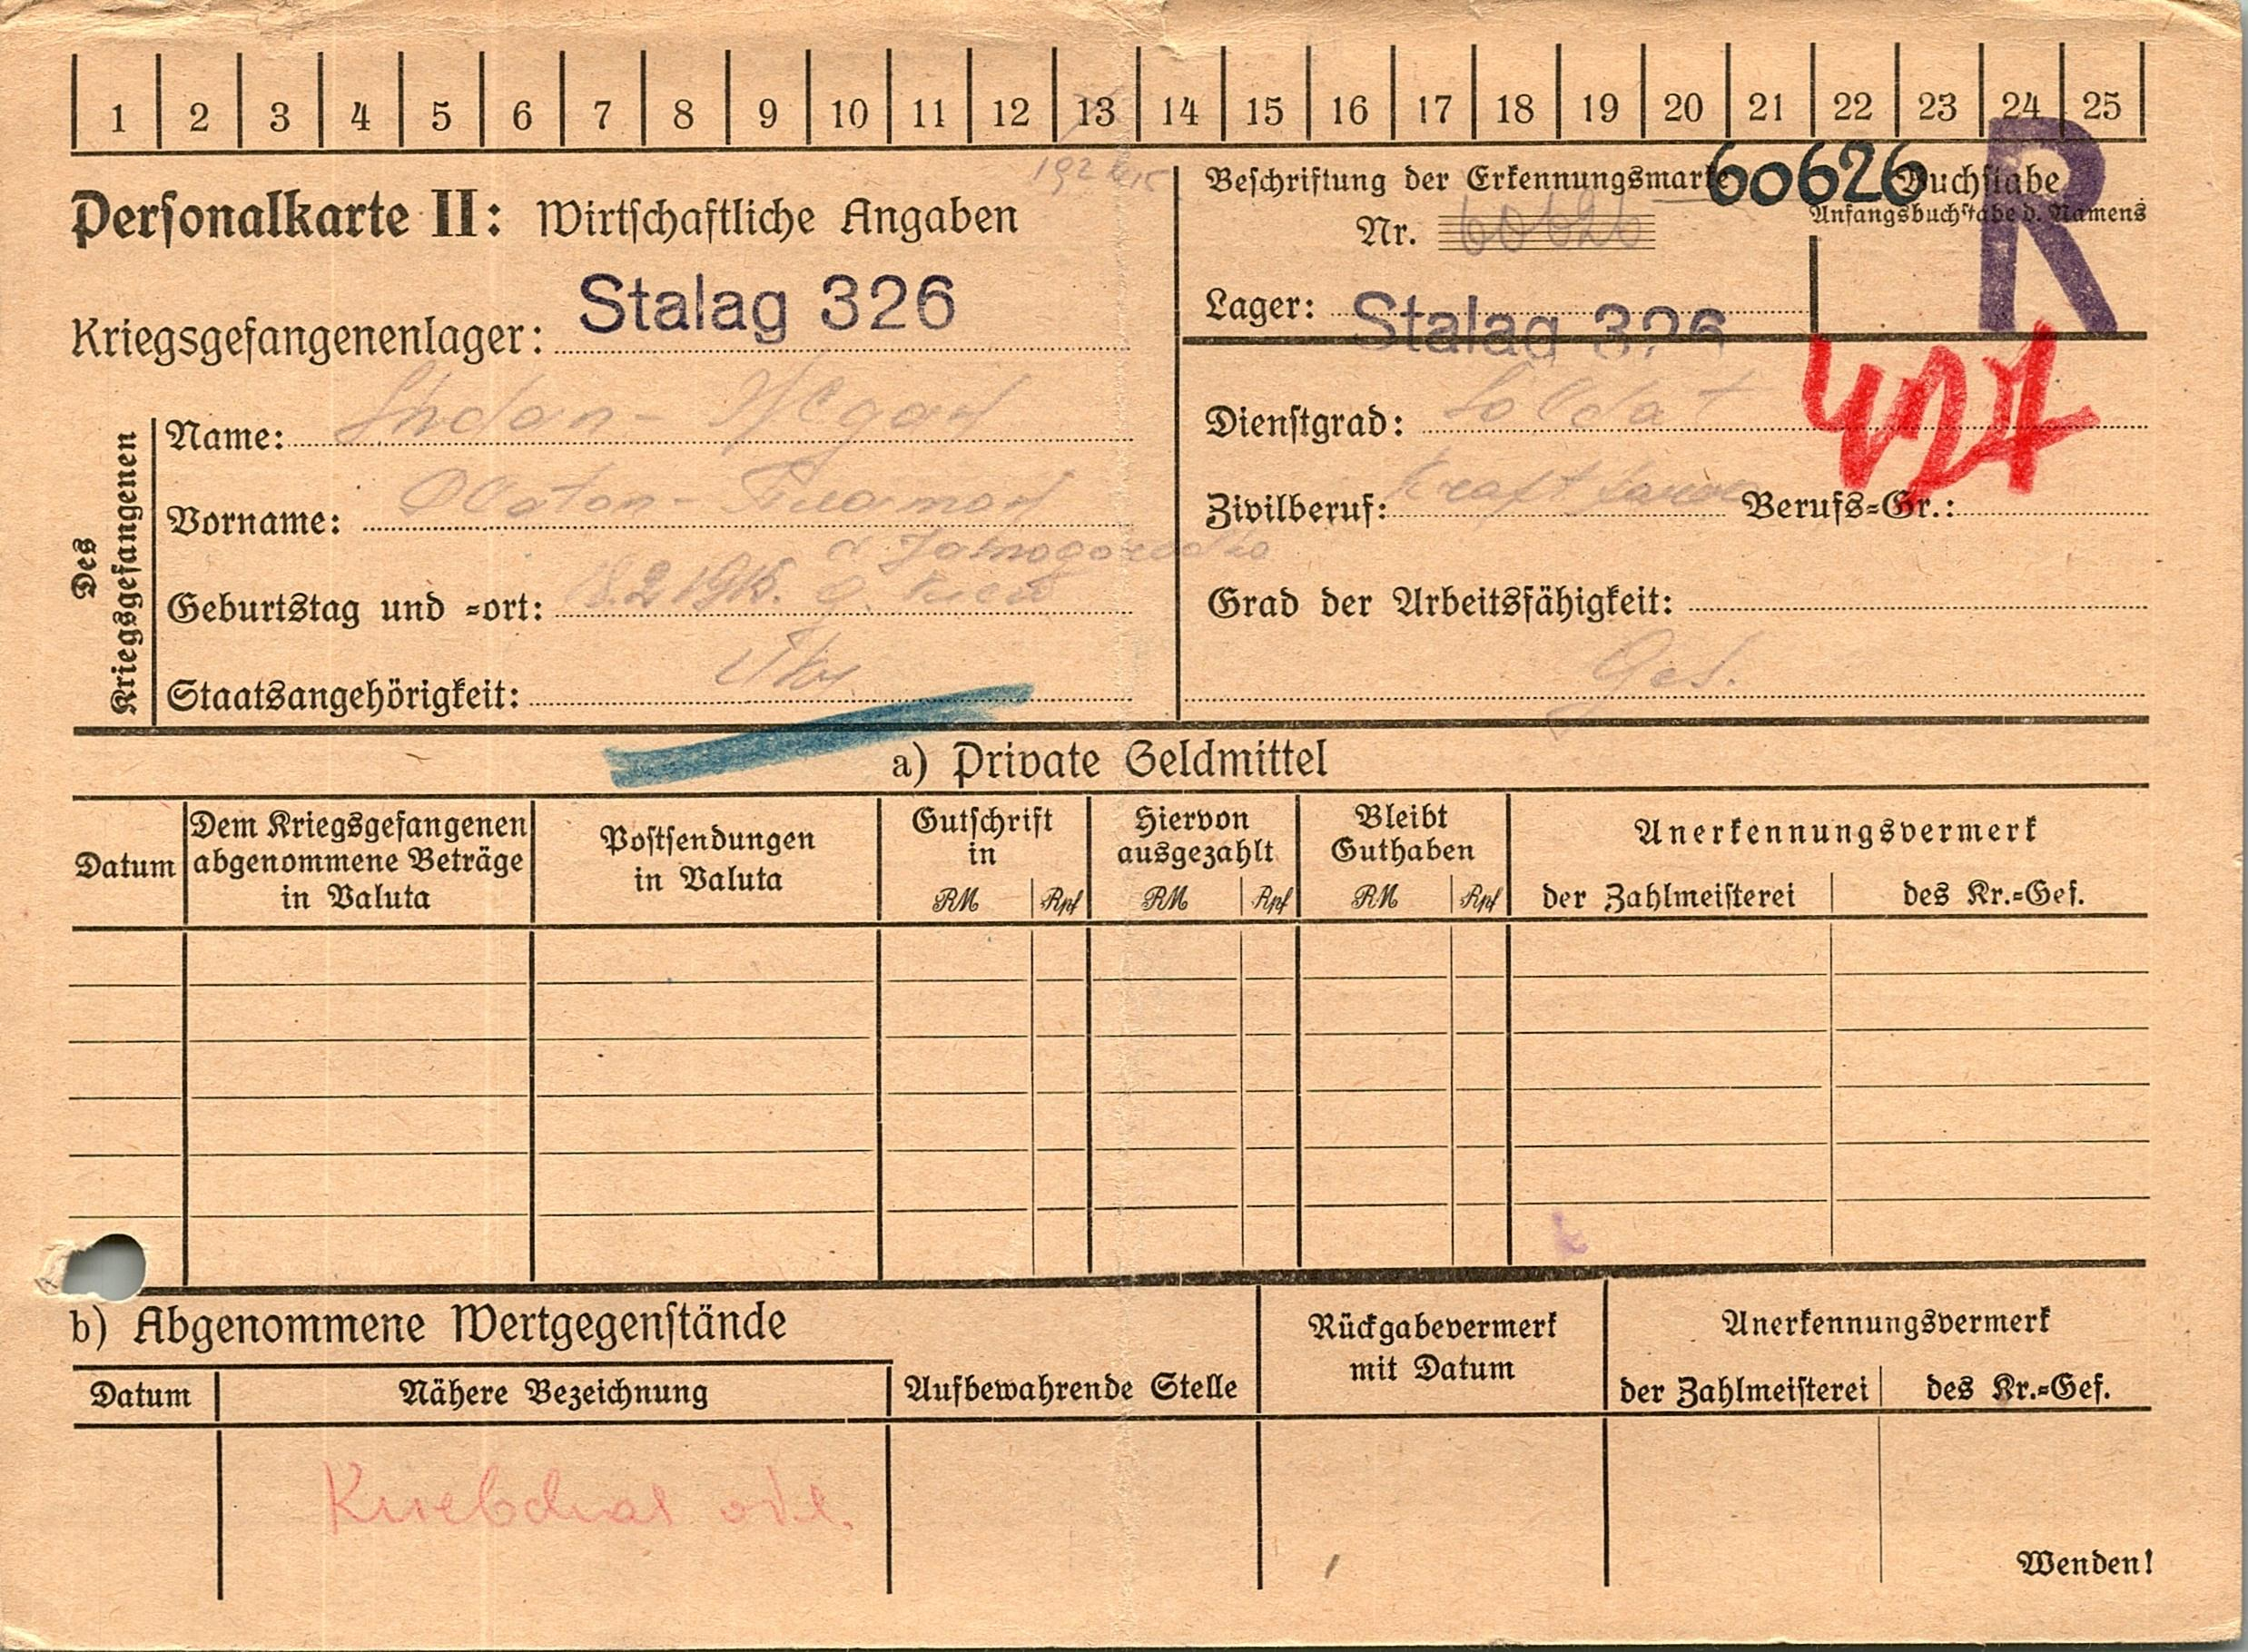 1 2 3 4 5 6 7 8 9 10 11 12 13 14 15 16 17 18 19 20 21 22 23 24 25
Personalkarte II: Wirtschaftliche Angaben
Kriegsgefangenenlager: Stalag 326
Beschriftung der Erkennungsmarke 60626
Nr. 60626
Lager: Stalag 326
Buchstabe R
Anfangsbuchstabe d. Namens
427
Des Kriegsgefangenen
Name:
Vorname:
Geburtstag und =ort: 18.2.1915.
Staatsangehörigkeit:
Dienstgrad: Soldat
Zivilberuf: Berufs=Gr.:
Grad der Arbeitsfähigkeit:
Ges.
a) Private Geldmittel
Datum
Dem Kriegsgefangenen
abgenommene Beträge
in Valuta
Postsendungen
in Valuta
Gutschrift
in
RM Rpf
Hiervon
ausgezahlt
RM Rpf
Bleibt
Guthaben
RM Rpf
Anerkennungsvermerk
der Zahlmeisterei des Kr.=Gef.
b) Abgenommene Wertgegenstände
Datum Nähere Bezeichnung Aufbewahrende Stelle
Rückgabevermerk
mit Datum
Anerkennungsvermerk
der Zahlmeisterei des Kr.=Gef.
Wenden!